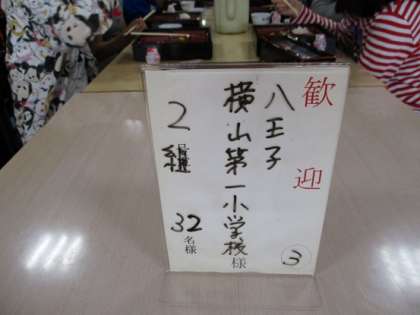 歓迎
八王子
横山第一小学校様
2組
32名様
3